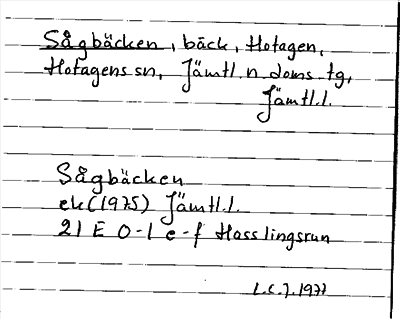 Sågbäcken, bäck, Hotagen,
Hotagens sn, Jämtl. n. doms. tg,
Jämtl. l.
Sågbäcken
ek (1975) Jämtl. l.
21 E 0-1 e-f Hosslingsrun
1977